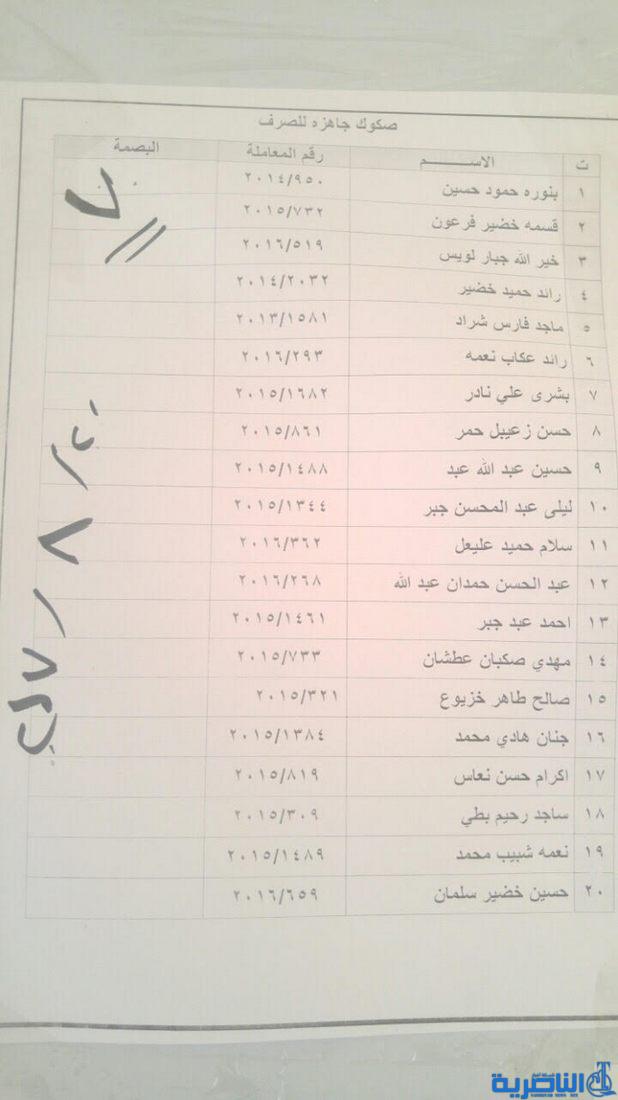 صكوك جاهزه للصرف
ت الاســـــــم رقم المعاملة البصمة
١ بنوره حمود حسين ٢٠١٤/٩٥٠
٢ قسمه خضير فرعون ٢٠١٥/٧٣٢
٣ خير الله جبار لويس ٢٠١٦/٥١٩
٤ رائد حميد خضير ٢٠١٤/٢٠٣٢
٥ ماجد فارس شراد ٢٠١٣/١٥٨١
٦ رائد عكاب نعمه ٢٠١٦/٢٩٣
٧ بشرى علي نادر ٢٠١٥/١٦٨٢
٨ حسن زعيبل حمر ٢٠١٥/٨٦١
٩ حسين عبد الله عبد ٢٠١٥/١٤٨٨
١٠ ليلى عبد المحسن جبر ٢٠١٥/١٣٤٤
١١ سلام حميد عليعل ٢٠١٦/٣٦٢
١٢ عبد الحسن حمدان عبد الله ٢٠١٦/٢٦٨
١٣ احمد عبد جبر ٢٠١٥/١٤٦١
١٤ مهدي صكبان عطشان ٢٠١٥/٧٣٣
١٥ صالح طاهر خزيوع ٢٠١٥/٣٢١
١٦ جنان هادي محمد ٢٠١٥/١٣٨٤
١٧ اكرام حسن نعاس ٢٠١٥/٨١٩
١٨ ساجد رحيم بطي ٢٠١٥/٣٠٩
١٩ نعمه شبيب محمد ٢٠١٥/١٤٨٩
٢٠ حسين خضير سلمان ٢٠١٦/٦٥٩
الناصرية